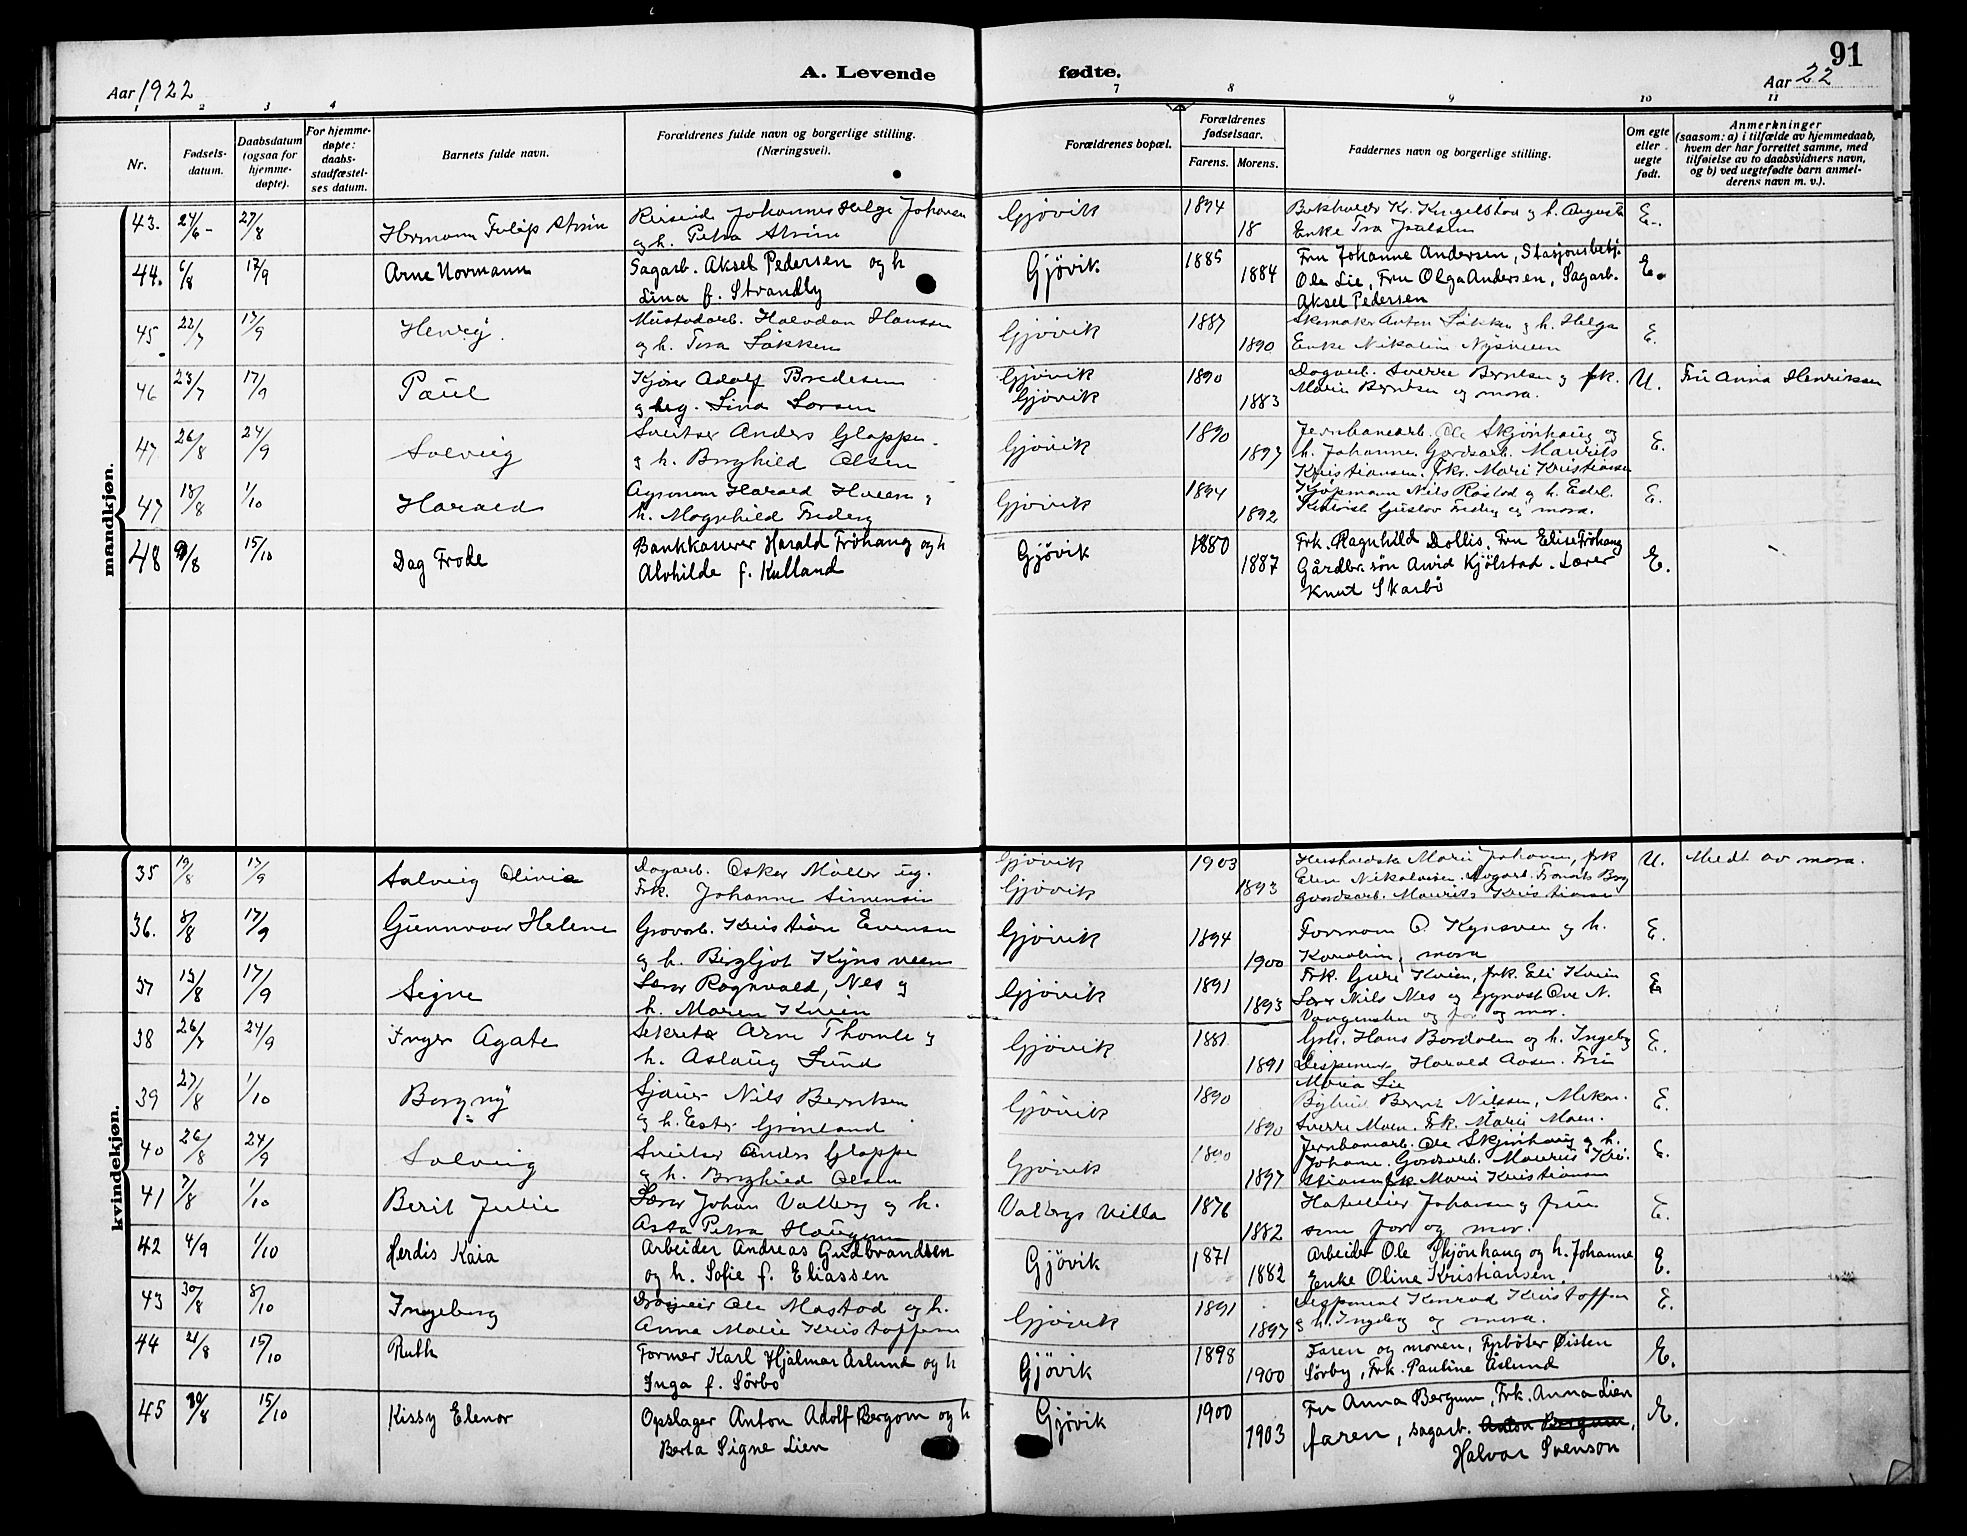 91
A. Levende fødte.
Aar 1922
Aar 22
1 2 3 4 7 8 9 10 11
Nr.
Fødsels-
datum.
Daabsdatum
(ogsaa for
hjemme-
døpte).
For hjemme-
døpte:
daabs-
stadfæstel-
ses datum.
Barnets fulde navn.
Forældrenes fulde navn og borgerlige stilling.
(Næringsvei).
Forældrenes bopæl.
Forældrenes
fødselsaar.
Farens. Morens.
Faddernes navn og borgerlige stilling.
Om egte
eller
uegte
født.
Anmerkninger
(saasom: a) i tilfælde av hjemmedaab,
hvem der har forrettet samme, med
tilføielse av to daabsvidners navn,
og b) ved uegtefødte barn anmel-
derens navn m. v.).
mandkjøn.
43. 24/6 27/8 Johannes Helge Johansen Gjøvik 1894 E.
og h. Petra 18 Enke
44. 6/8 17/9 Arne Normann Sagarb. Aksel Pedersen og h Gjövik 1885 Fru Johanne Andersen, Stasjonsbetj. E.
Lina f. Strandby 1884 Ole Lie, Fru Olga Andersen, Sagarb.
Aksel Pedersen
45 22/7 17/9 Henry Mustadarb. Halvdan Hansen Gjøvik 1887 Skomaker Anton Løkken og h. Helga E.
og h. Tora Løkken 1890 Enke Nikoline Nysveen
46 23/7 17/9 Paul Kjører Adolf Bredesen Gjøvik 1890 Dagarb. Sverre Berntsen og frk. U. Fru Anna Henriksen
og Lina Larsen Gjøvik 1883 Marie Berntsen og mora.
47 26/8 24/9 Solveig Sveitser Anders Gloppe Gjøvik 1890 Jernbanearb. Ole Skjønhaug og E.
og h. Borghild Olsen 1897 h. Johanne, Gardsarb. Maurits
Kristiansen, frk. Mari Kristiansen
47 18/8 1/10 Harald Agronom Harald Hveem og Gjøvik 1894 Kjøpmann Nils Røstad og h. Edel. E.
h. Magnhild Fredby 1892 Gustav Fredby og mora.
48 9/8 15/10 Dag Frode Bankkasserer Harald Fröhaug og h Gjövik 1880 Frk. Ragnhild Dollis, Fru Elise Fröhaug E.
Alvhilde f. Kulland 1887 Gårdbr.sön Arvid Kjölstad. Lærer
Knut Skarbö
kvindekjøn.
35 19/8 17/9 Solveig Olivia Dagarb. Oskar Møller ug. Gjøvik 1903 Marie Johansen, frk U. Meldt av mora.
Frk. Johanne Simensen Gjøvik 1893 Nikolaisen
Gardsarb. Maurits Kristiansen
36. 8/8 17/9 Gunnvor Helene Grovarb. Kristian Evensen Gjøvik 1894 Formann O Kynsveen og h. E.
og h. Bergljot Kynsveen 1900 Karoline, mora
37 13/8 17/9 Signe Lærer Ragnvald Nes og Gjøvik 1891 Frk. Guri Kvien, frk. Eli Kvien E
h. Maren Kvien 1893 Lærer Nils Nes og Ove N.
og far og mor.
38 26/7 24/9 Inger Agate Arne Thomle og Gjøvik 1881 Hans Bordalen og h. Ingeborg E.
h. Aslaug Lund 1891 Disponent Harald Aasen. Fru
Maria Lie
39 27/8 1/10 Borgny Sjåfør Nils Berntsen Gjøvik 1890 Bernt Nilssen, Mekan. E.
og h. Ester Grønland 1890 Sverre Moen. Frk. Marie Moen.
40 26/8 24/9 Solveig Sveitser Anders Gloppe Gjøvik 1890 Jernbanearb. Ole Skjønhaug og h. E.
og h. Borghild Olsen 1897 Johanne. Gardsarb. Maurits Kri-
stiansen, frk Mari Kristiansen
41 7/8 1/10 Berit Julie Lærer Johan Valberg og h. Valbergs Villa 1876 Hotelleier Johansen og frue E.
Asta Petra Haugen 1882 som far og mor.
42 4/9 1/10 Herdis Kaia Arbeider Andreas Gudbrandsen Gjövik 1871 Arbeider Ole Skjönhaug og h. Johanne E.
og h. Sofie f. Eliassen 1882 Enke Oline Kristiansen.
43 30/8 8/10 Ingeborg Ole Mastad og h. Gjøvik 1891 Disponent Konrad Kristoffersen E.
Anna Marie Kristoffersen 1897 og h. Ingeborg og mora.
44 21/8 15/10 Ruth Former Karl Hjalmar Åslund og h Gjövik 1898 Faren og moren, Fyrböter Øisten E.
Inga f. Sörbö 1900 Sørby, Frk. Pauline Åslund
45 30/8 15/10 Kissy Elenor Opslager Anton Adolf Bergom og h Gjövik 1900 Fru Anna Bergum, Frk. Anna Lien E.
Berta Signe Lien 1903 faren, sagarb. Anton Bergum,
Halvar Svenson